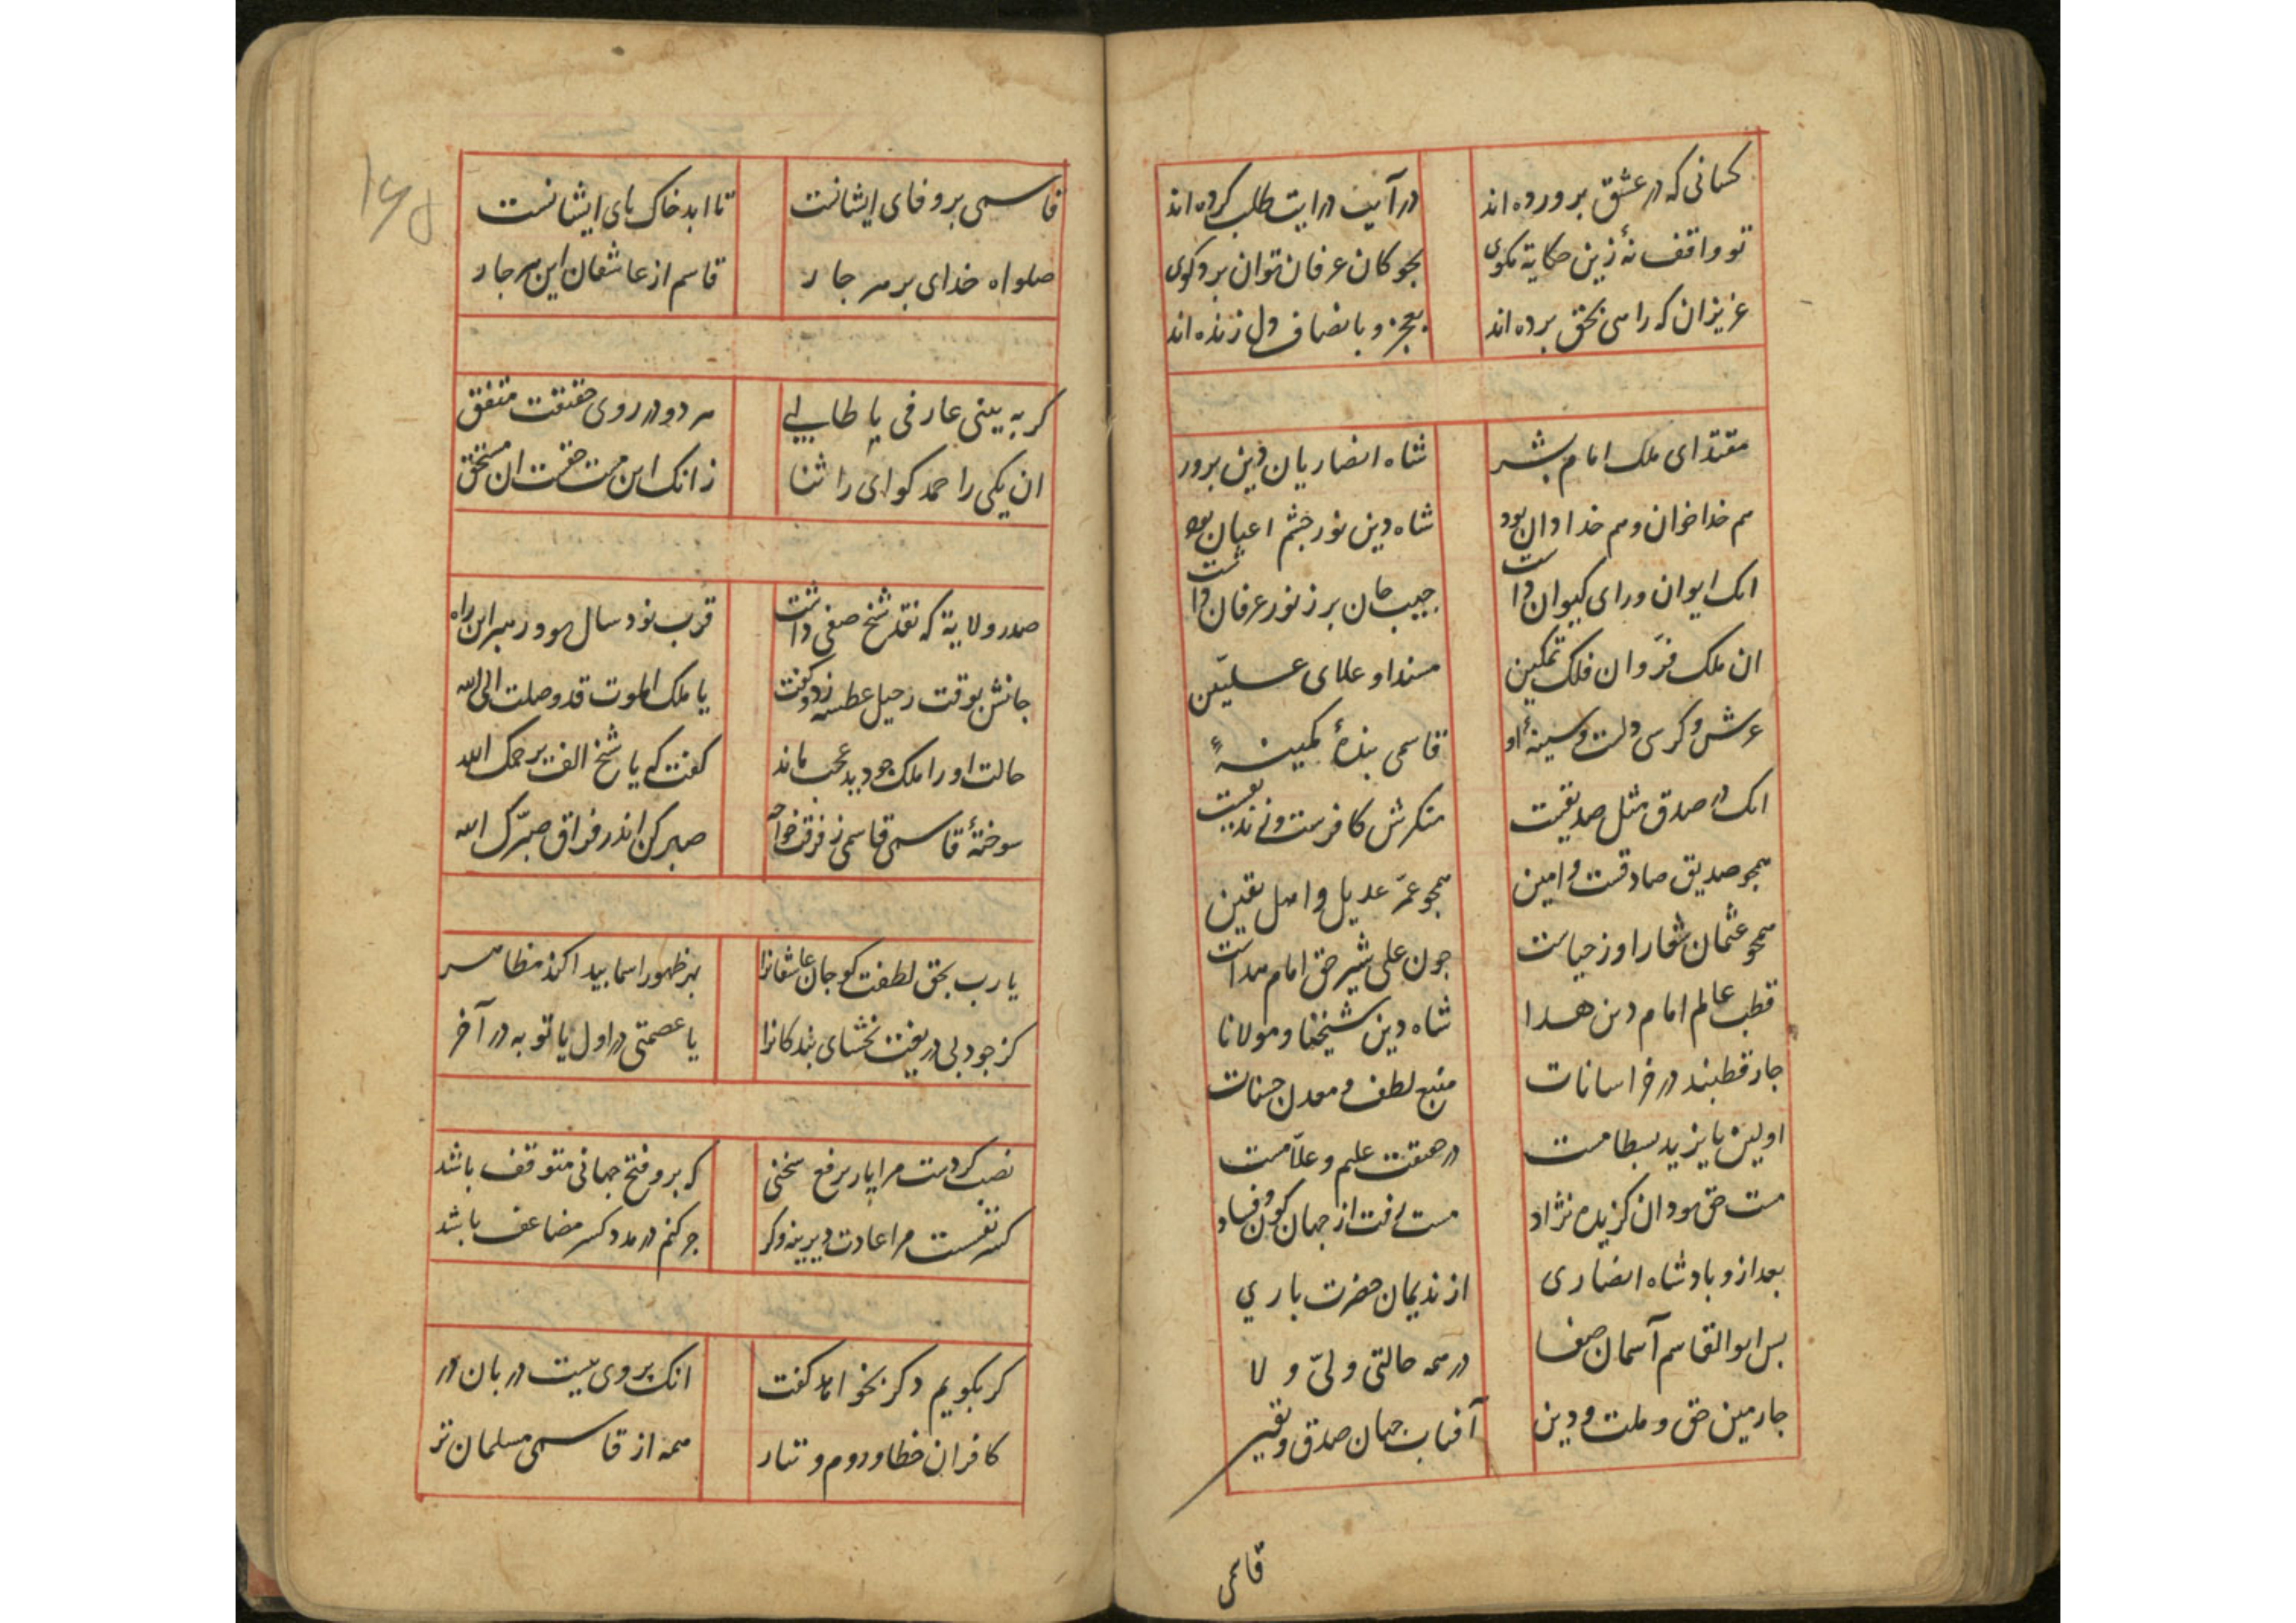 کسانی که در عشق پرورده‌اند در آیت درایت طلب کرده‌اند
تو واقف نهٔ زین حکایة مکوی بجوکان عرفان توان برد کوی
عزیزان که راهی بحق برده‌اند بعجز و بانصاف دل زنده‌اند
مقتدای ملک امام بشر شاه انصاریان دین برور
هم خداخوان و هم خدادان بود شاه دین نور جشم اعیان بود
انک ایوان ورای کیوان داشت جیب جان بر ز نور عرفان داشت
ان ملک فرّ و ان فلک تمکین مسند او علای علیین
عرش و کرسی دلست و سینهٔ او قاسمی بندهٔ کمینهٔ
انک در صدق مثل صدیقیست منکرش کافرست و زندیقیست
همجو صدیق صادقست و امین همجو عمّر عدیل و اصل یقین
همجو عثمان شعار او ز حیاست جون علی شیر حق امام هداست
قطب عالم امام دین هدا شاه دین شیخنا و مولانا
جار قطبند در خراسانات منبع لطف و معدن حسنات
اولین بایزید بسطامست در حقیقت علیم و علّامست
مست حق بود ان کزیده نژاد مست رفت از جهان کون و فساد
بعد ازو بادشاه انصاری از ندیمان حضرت باري
بس ابوالقاسم آسمان صفا در همه حالتی ولیّ و لا
جارمین حق و ملت و دین آفتاب جهان صدق و یقین
قاسمی
۱۶۵
قاسمی بر وفای ایشانست تا ابد خاک بای ایشانست
صلواه خدای بر هر جار قاسم از عاشقان این هر جار
کر به بینی عارفی یا طالبی هر دو در روی حقیقت متفق
ان یکی را حمد کو ای را ثنا زانک این هست حقست ان مستحق
صدر ولایة که نقد شیخ صفی داشت قرب نود سال بود رهبر این راه
جانش بوقت رحیل عطسه زد و کفت یا ملک الموت قد وصلت الی الله
حالت او را ملک جو دید عجب ماند کفت که یا شیخ الف یرحمک الله
سوختهٔ قاسمی ز فرقت خواجه صبر کن اندر فراق صبّرک الله
یا رب بحق لطفت کو جان عاشقانرا بهر ظهور اسما بیدا کند مظاهر
کز جود بی دریغت بخشای بندکانرا یا عصمتی در اول یا توبه در آخر
نصب کردست مرا یار برفع سخنی که برو فتح جهانی متوقف باشد
کسر نفسست مرا عادت دیرینه و کر جر کنم در مدد کسر مضاعف باشد
کر بکویم دکر نخواهد کفت انک بروی نیست دربان در
کافران خطا و روم و تتار همه از قاسمی مسلمان تر